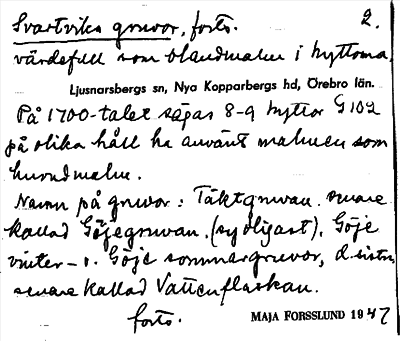 Svartviks gruvor, forts. 2.
värdefull som blandmalm i hyttorna.
Ljusnarsbergs sn, Nya Kopparbergs hd, Örebro län.
På 1700-talet sägas 8-9 hyttor
på olika håll ha använt malmen som
huvudmalm.
Namn på gruvor: Täktgruvan. senare
kallad Göjegruvan. (sydligast). Göje
vinter- o. Göje sommargruvor, d. sistn.
senare kallad Vattenflaskan.
forts.
MAJA FORSSLUND 1947